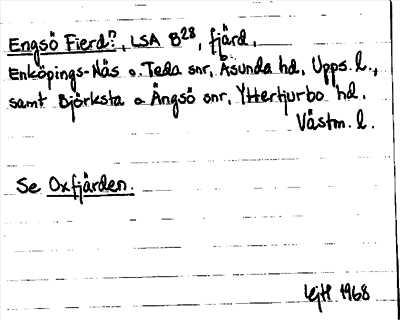 Engsö Fierd?, LSA B28, fjärd,
Enköpings-Näs o. Teda snr, Åsunda hd, Upps. l.,
samt Björksta o Ängsö snr, Yttertjurbo hd.
Västm. l.
Se Oxfjärden.
1968